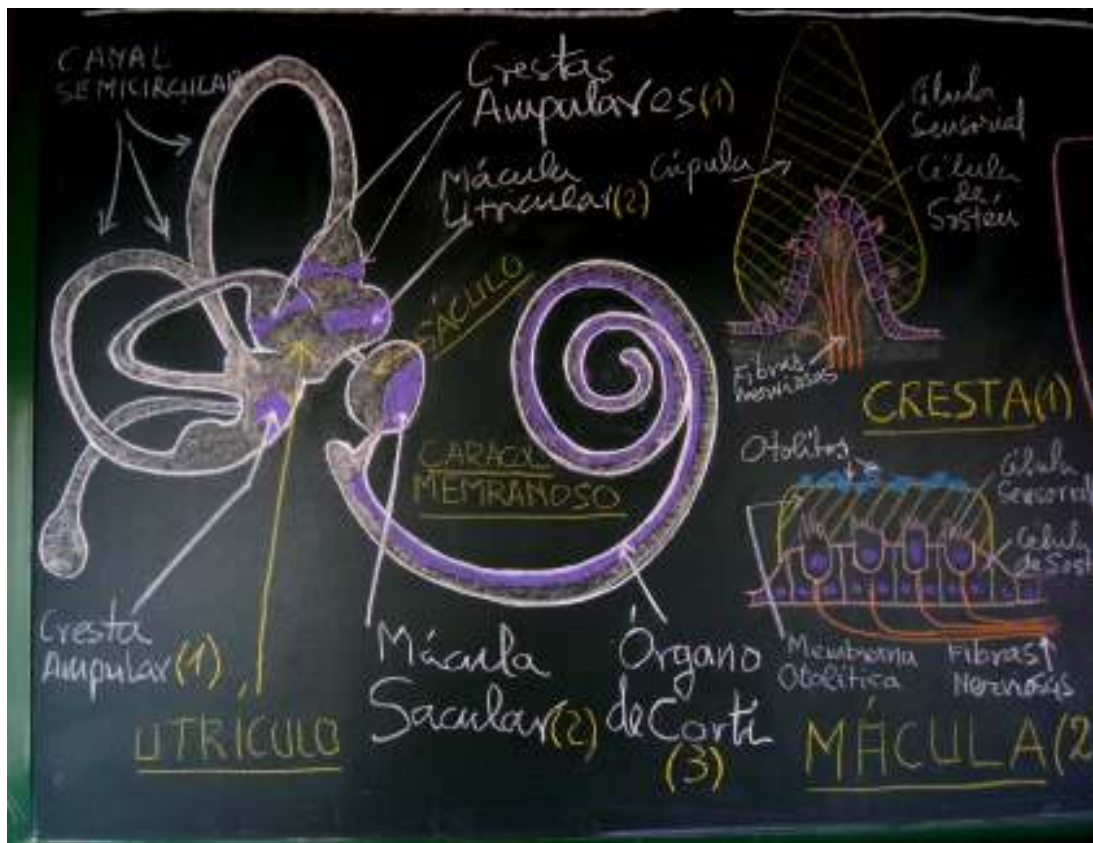 CANAL
SEMICIRCULAR
Crestas
Ampulares (1)
Mácula
Utricular (2)
SÁCULO
CARACOL
MEMRANOSO
Cresta
Ampular (1)
UTRÍCULO
Mácula
Sacular (2)
Órgano
de Corti
(3)
Célula
Sensorial
Cúpula
Célula
de
Sostén
Fibras
nerviosas
CRESTA (1)
Otolitos
Célula
Sensorial
Célula
de Sost
Membrana
Otolítica
Fibras
Nerviosas
MÁCULA (2